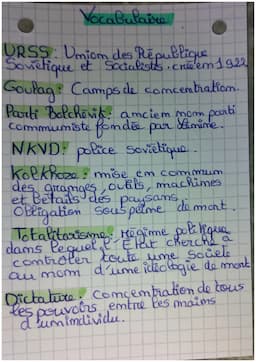 Vocabulaire
URSS : Union des République
Soviétique et Socialistes. créé en 1922
Goulag : Camps de concentration.
Parti Bolchévik : ancien nom parti
communiste fondée par Lénine.
NKVD : police soviétique.
Kolkhoze : mise en commun
des granges, outils, machines
et bétails des paysans.
Obligation sous peine de mort.
Totalitarisme : Régime politique
dans lequel l'Etat cherche à
contrôler toute une société
au nom d'une idéologie de mort
Dictature : Concentration de tous
les pouvoirs entre les mains
d'un individu.